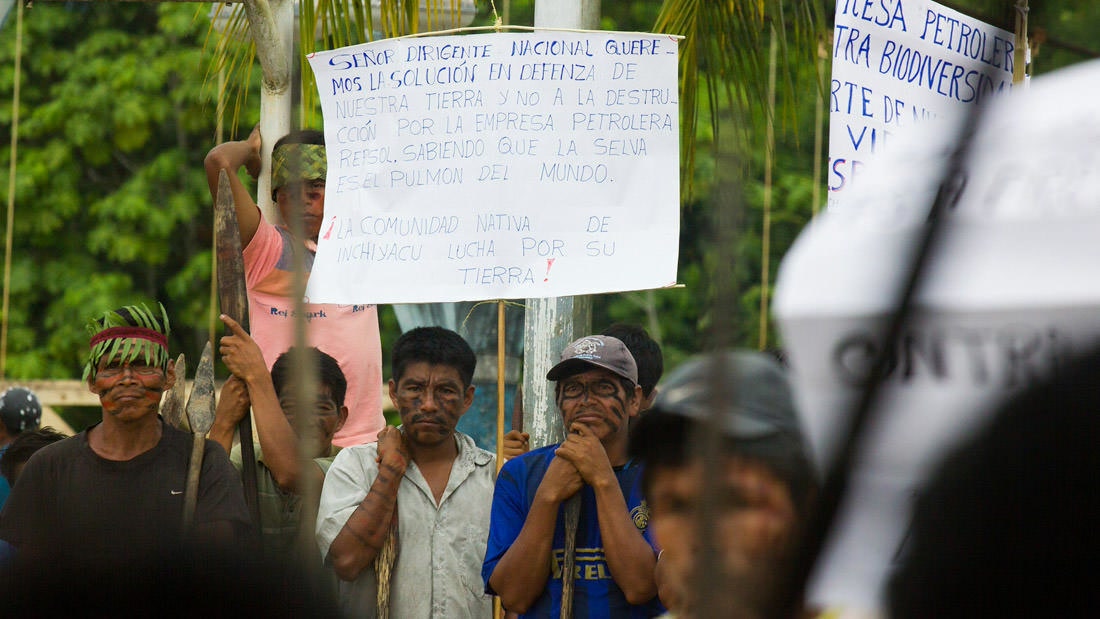 SEÑOR DIRIGENTE NACIONAL QUERE-
MOS LA SOLUCIÓN EN DEFENZA DE
NUESTRA TIERRA Y NO A LA DESTRU-
CCIÓN POR LA EMPRESA PETROLERA
REPSOL. SABIENDO QUE LA SELVA
ES EL PULMON DEL MUNDO.
¡LA COMUNIDAD NATIVA DE
INCHIYACU LUCHA POR SU
TIERRA!
RESA PETROLER
TRA BIODIVERSID
RTE DE
VID
ES
CONTR
Rei
Rei
IREL